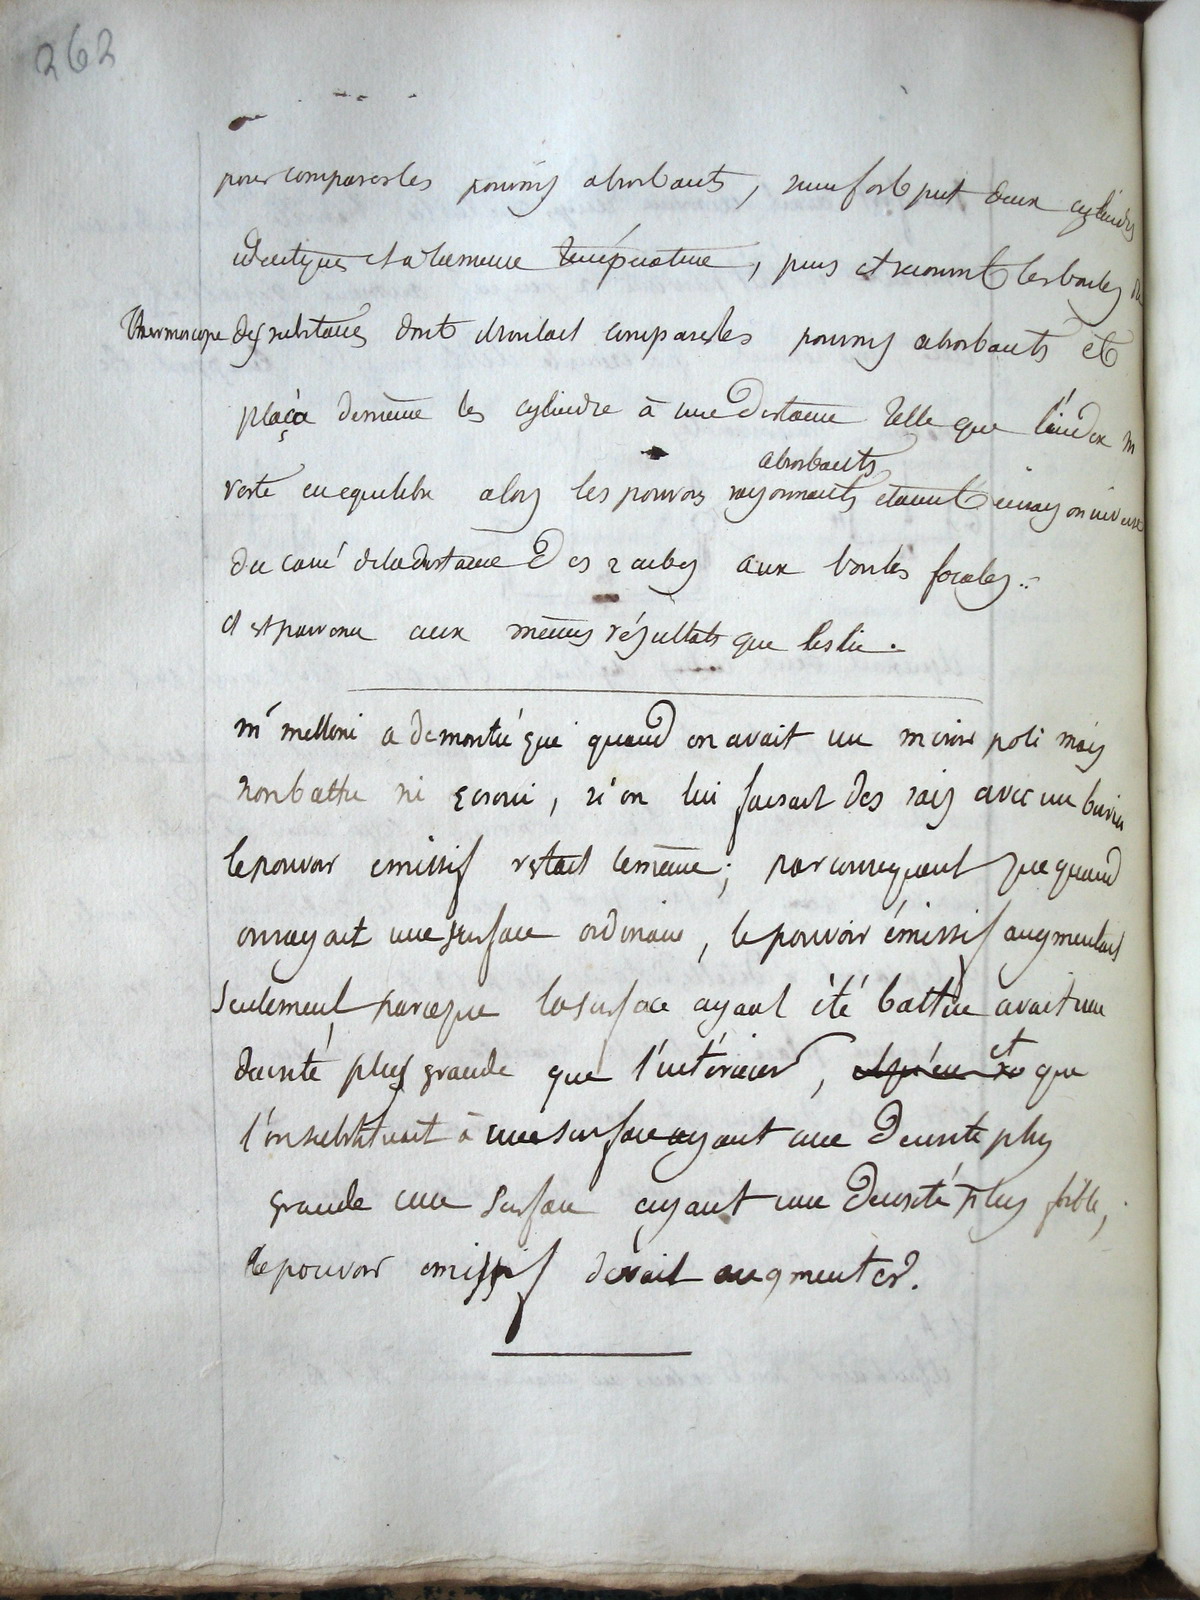 262
pour comparer les pouvoirs absorbants, rumford prit deux cylindres
identiques et a la meme température, puis et recouvrit les boules du
thermoscope des substances dont il voulait comparer les pouvoirs absorbants et
plaça de meme les cylindre à une distance telle que l'index
reste en equilibre alors les pouvoirs rayonnants étaient en rayon inverse
absorbants
du carré de la distance des 2 cubes aux boules focales.
il est parvenu aux mêmes résultats que leslie.
mr melloni a demontré que quand on avait un miroir poli mais
non battu ni écroui, si on lui faisait des rais avec un burin
le pouvoir emissif restait le même; par consequent que quand
on rayait une surface ordinaire, le pouvoir émissif augmentait
seulement parceque la surface ayant été battue avait une
densité plus grande que l'intérieur, et que
l'on substituait à une surface ayant une densité plus
grande une surface ayant une densité plus foible,
le pouvoir emissif devait augmenter.